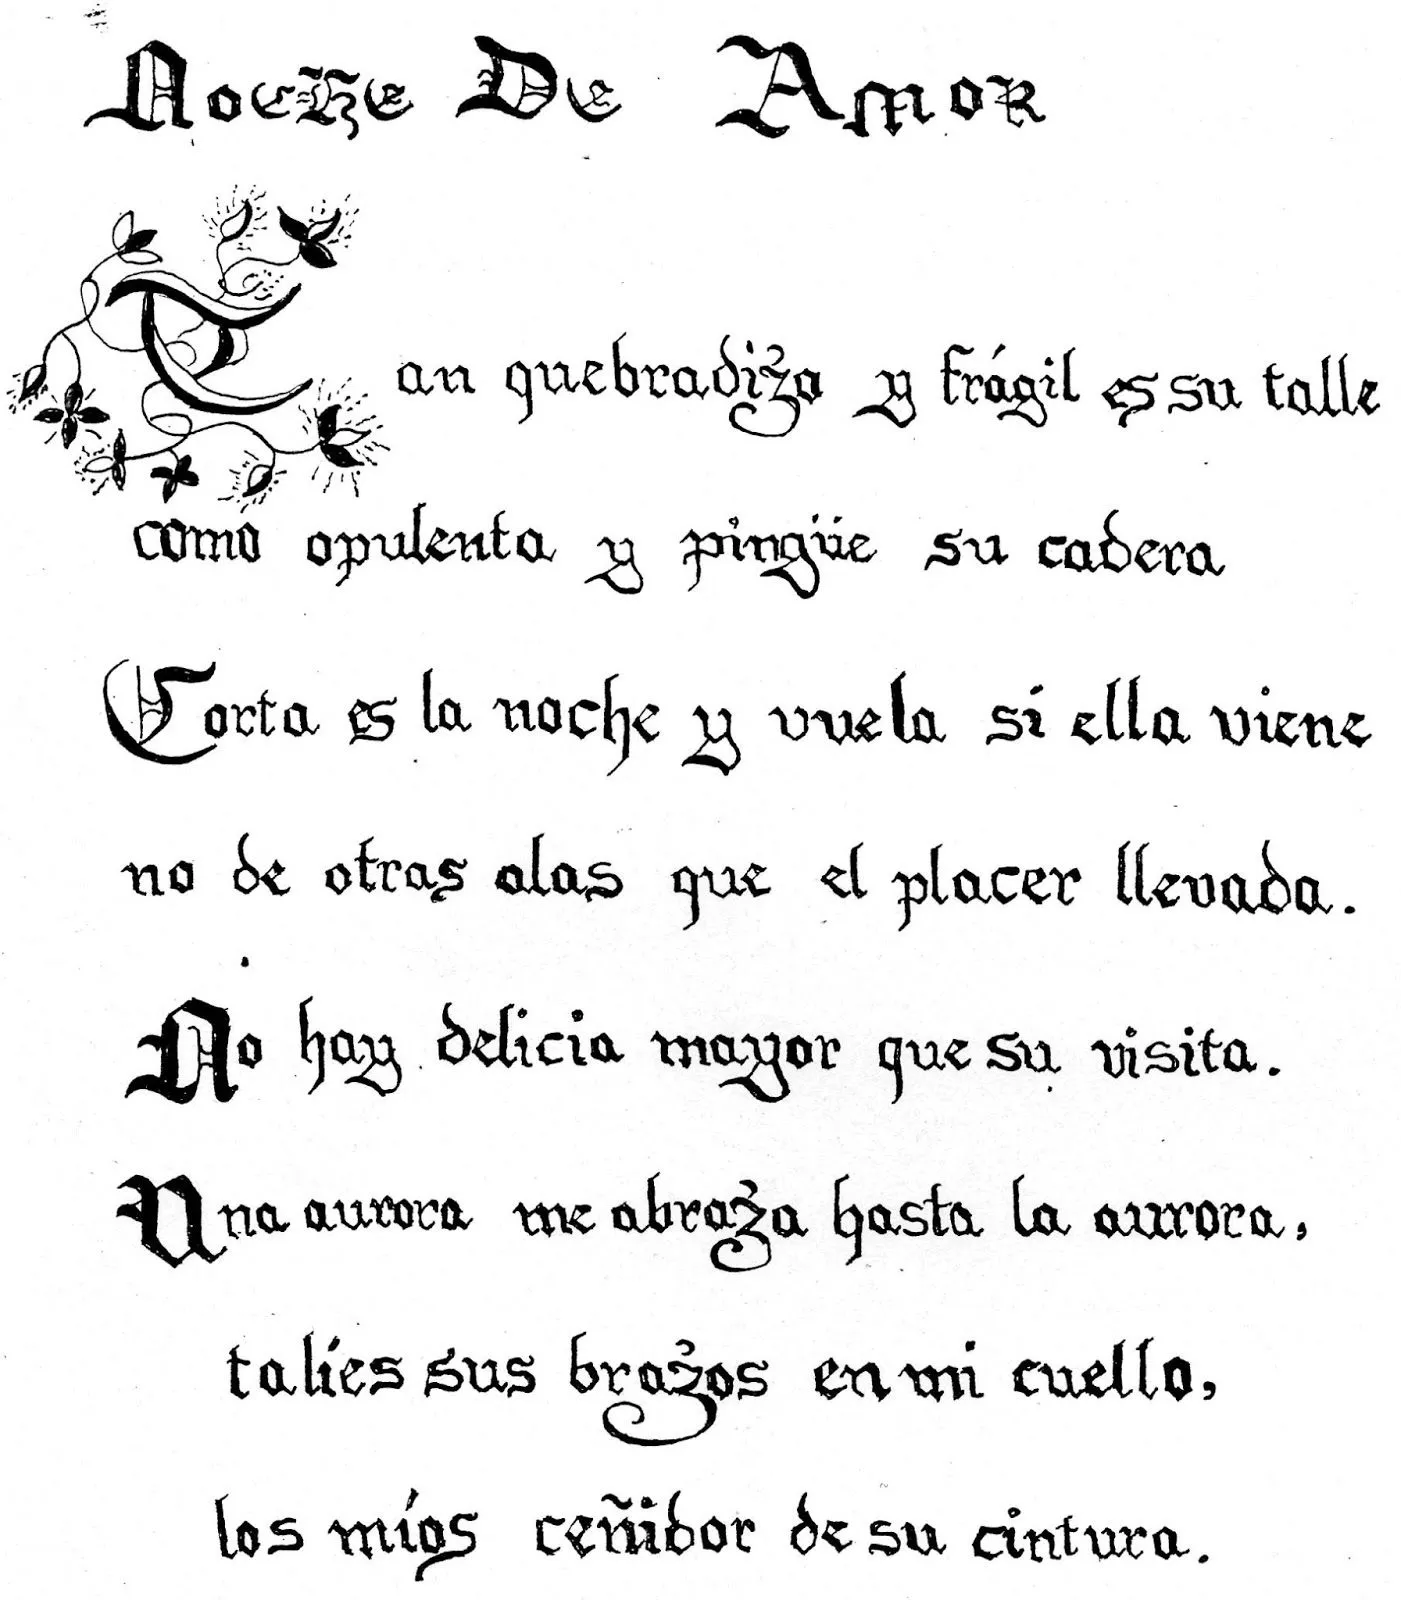 Noche De Amor
Tan quebradizo y frágil es su talle
como opulenta y pingüe su cadera
Corta es la noche y vuela si ella viene
no de otras alas que el placer llevada.
No hay delicia mayor que su visita.
Una aurora me abraza hasta la aurora,
talíes sus brazos en mi cuello,
los míos ceñidor de su cintura.